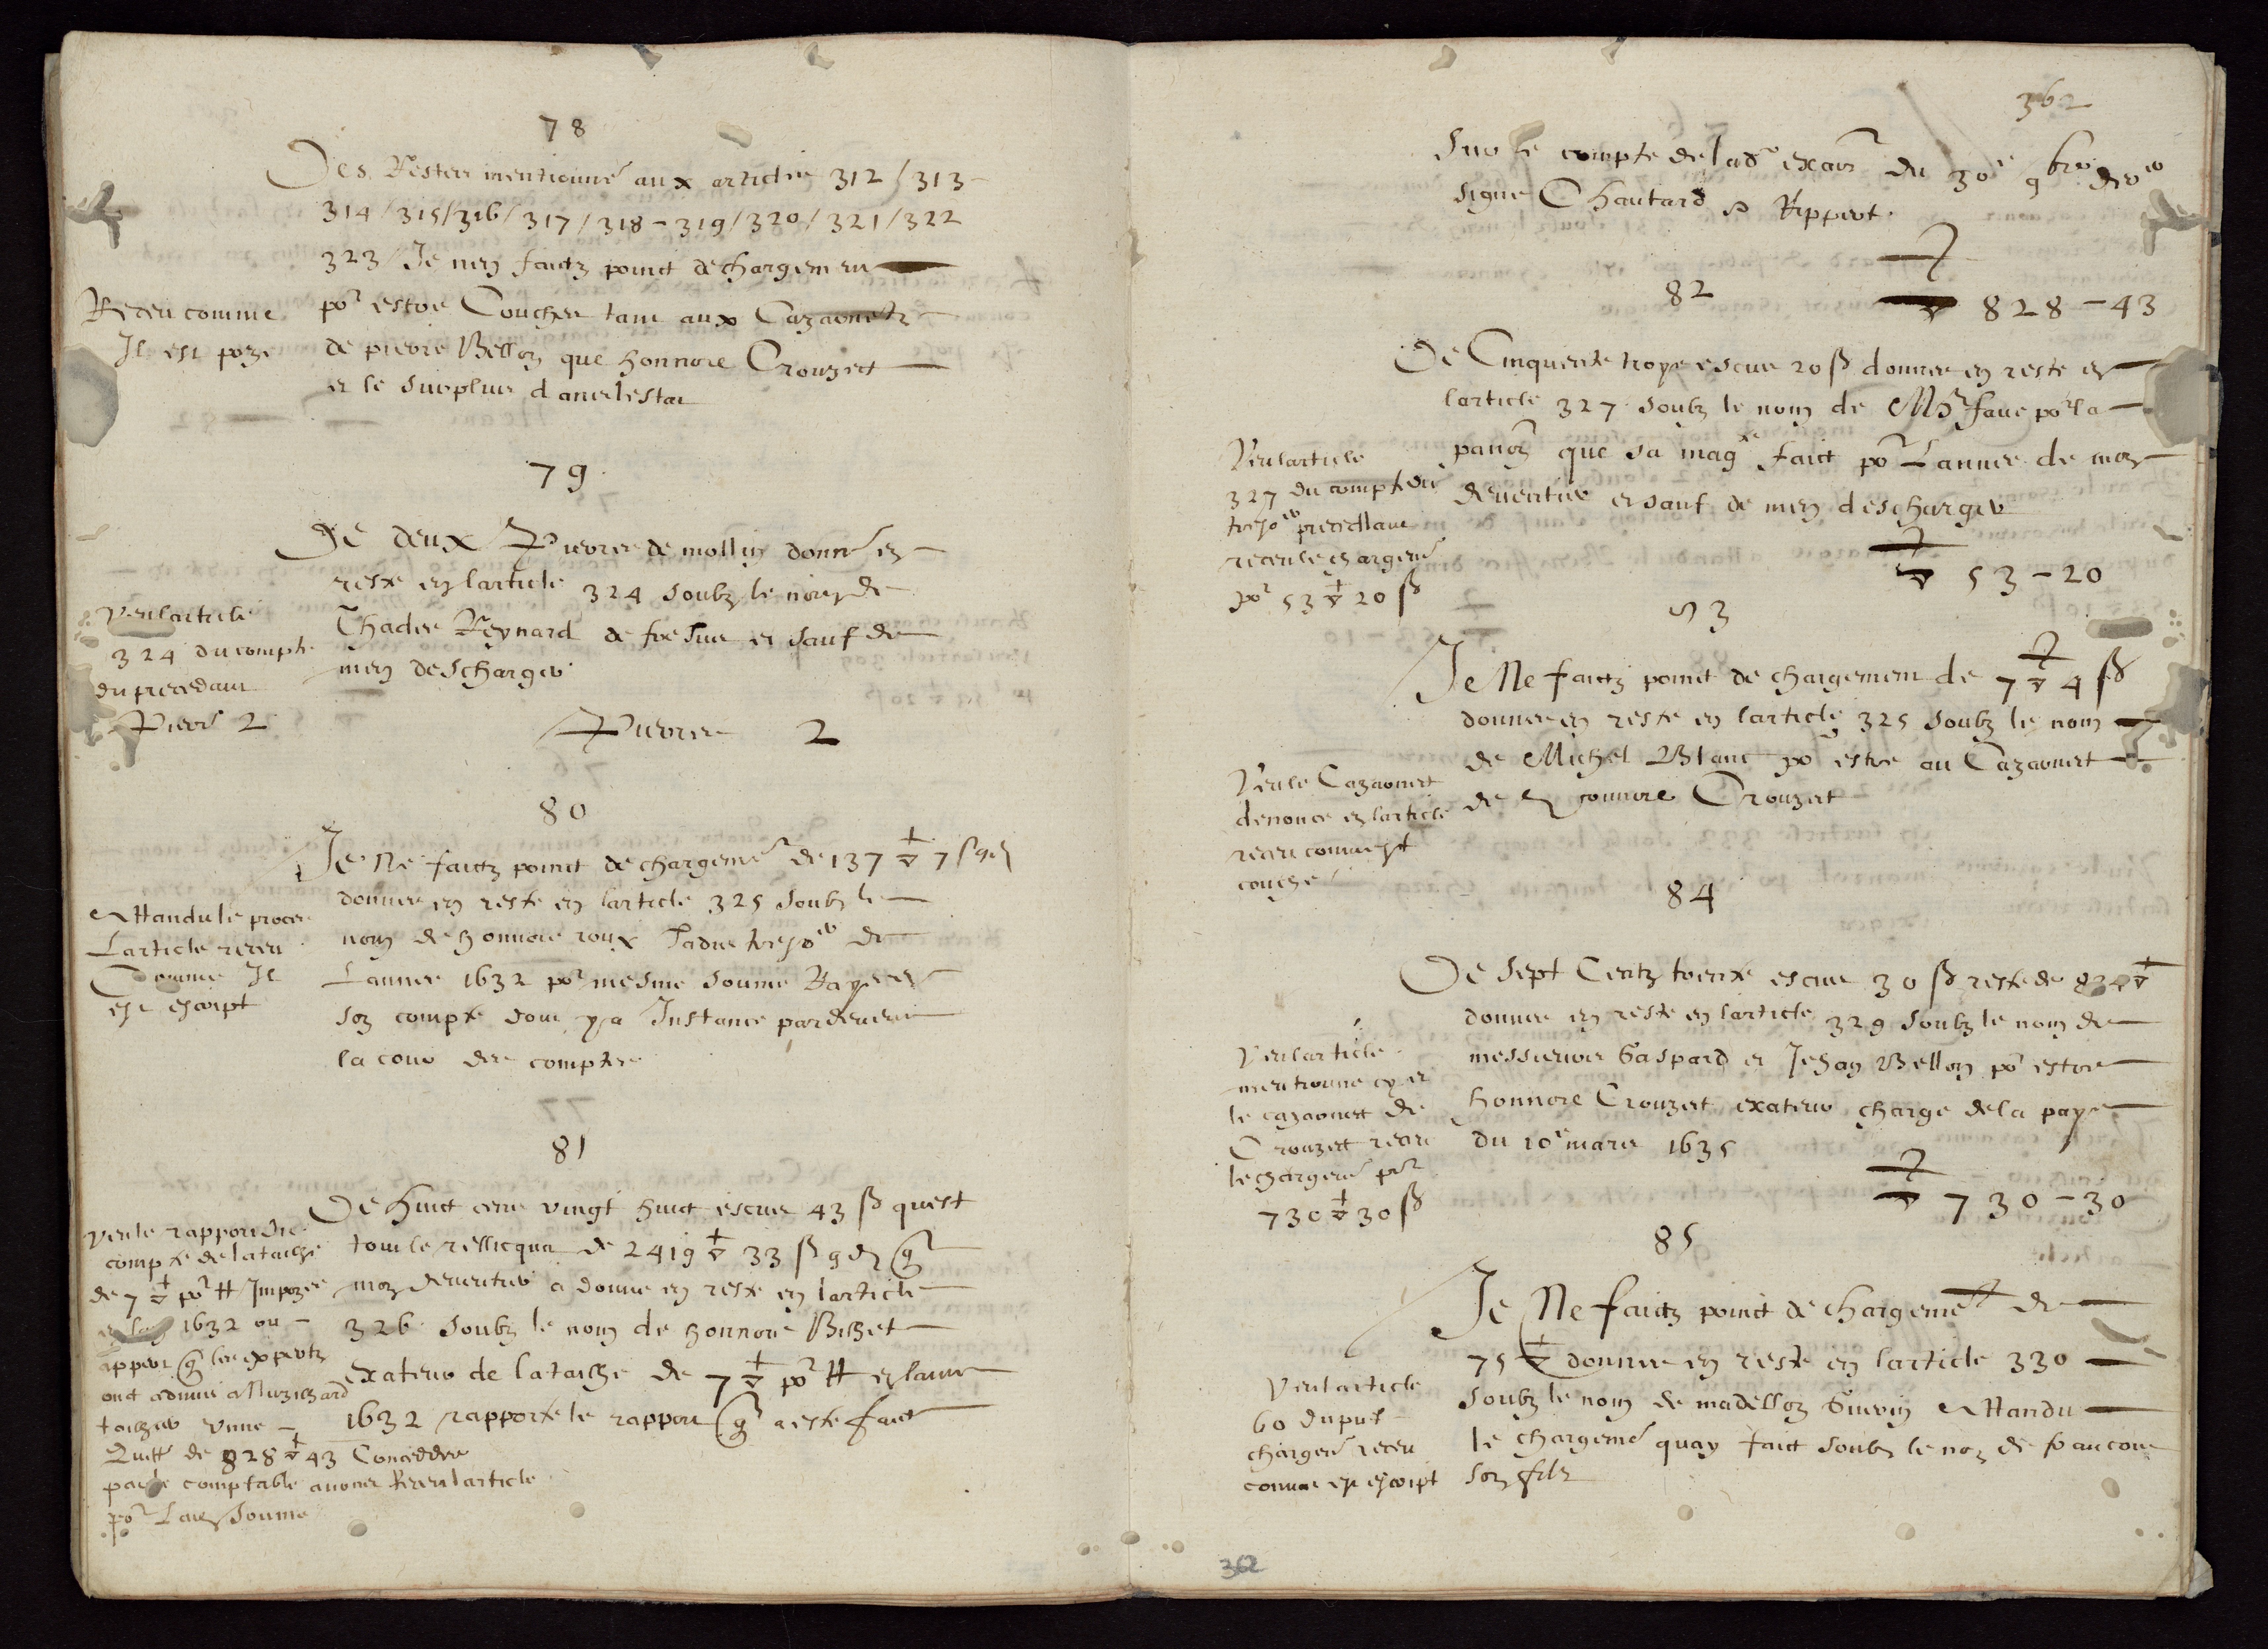 78
Des Restes mentionné aux articles 312 / 313
314 / 315 / 316 / 317 / 318 - 319 / 320 / 321 / 322
323 / Je nen faictz poinct de chargement
Receu comme
Il est pozé
por estre Couchés tant aux Cazaonetz
de pierre Bellon que honnore Crouzett
et le surplus
79
De deux Pierres de mollin donné en
reste en larticle 324 soubz le nom de
Thadee Reynard de et sauf de
men descharger
Veu larticle
324 du compte
du precedant
Pierres 2
Pierres 2
80
Je Ne faictz poinct de chargemt de 137 7 s 9 d
donnes en reste en larticle 325 soubz le
nom de honnore roux tresor de
Lannee 1632 por mesme somme Rayee en
son compte dont y a Instance pardevant
la cour des comptes
Attandu le proces
Larticle receu
Comme Il
est escript
81
De huict cens vingt huict escus 43 s quest
tout le rellicqua de 2419 33 s 9 d que
mon devantier a donné en reste en larticle
326 soubz le nom de honnore
exateur de la tailhe de 7 por # en lanne
1632 rapporte le rapport que a esté faict
Veu le rapport du
compte de la tailhe
de 7 por # Impozee
en lan 1632 ou
appert que les expertz
ont admis a
Quitt de 828 43 Conceddee
par le comptable avons Receu larticle
por somme
362
Sur le compte de lad exaon du 30e 9bre
signé Chautard & Rippert
828 - 43
82
De Cinquente troys escus 20 s donnes en reste en
larticle 327 soubz le nom de Mr fave por la
pantion que sa mag.te faict por Lannee de mon
devantier et sauf de men descharger
53 - 20
Veu larticle
327 du compte du
tresor precedant
receu le chargemt
por 53 20 s
83
Je Ne faictz poinct de chargement de 7 4 s
donnes en reste en larticle 325 soubz le nom
de Michel Blanc por estre au Cazaonet
de honnore Crouzet
Veu le Cazaonet
denonce en larticle
receu comme est
couché
84
De sept Centz trente escus 30 s reste de
donnes en reste en larticle 329 soubz le nom de
messieurs Gaspard et Jehan Bellon por estre
honnore Crouzet exateur chargé de la paye
du 10e mars 1635
730 - 30
Veu larticle
mentionné cy et
le cazaonet de
Crouzet receu
le chargemt por
730 30 s
85
Je Ne faictz poinct de chargemt de
75 donnes en reste en larticle 330
soubz le nom de madellon Guerin Attandu
le chargemt quay faict soubz le nom de
son filz
Veu larticle
60 du put
chargemt receu
comme est escript
362